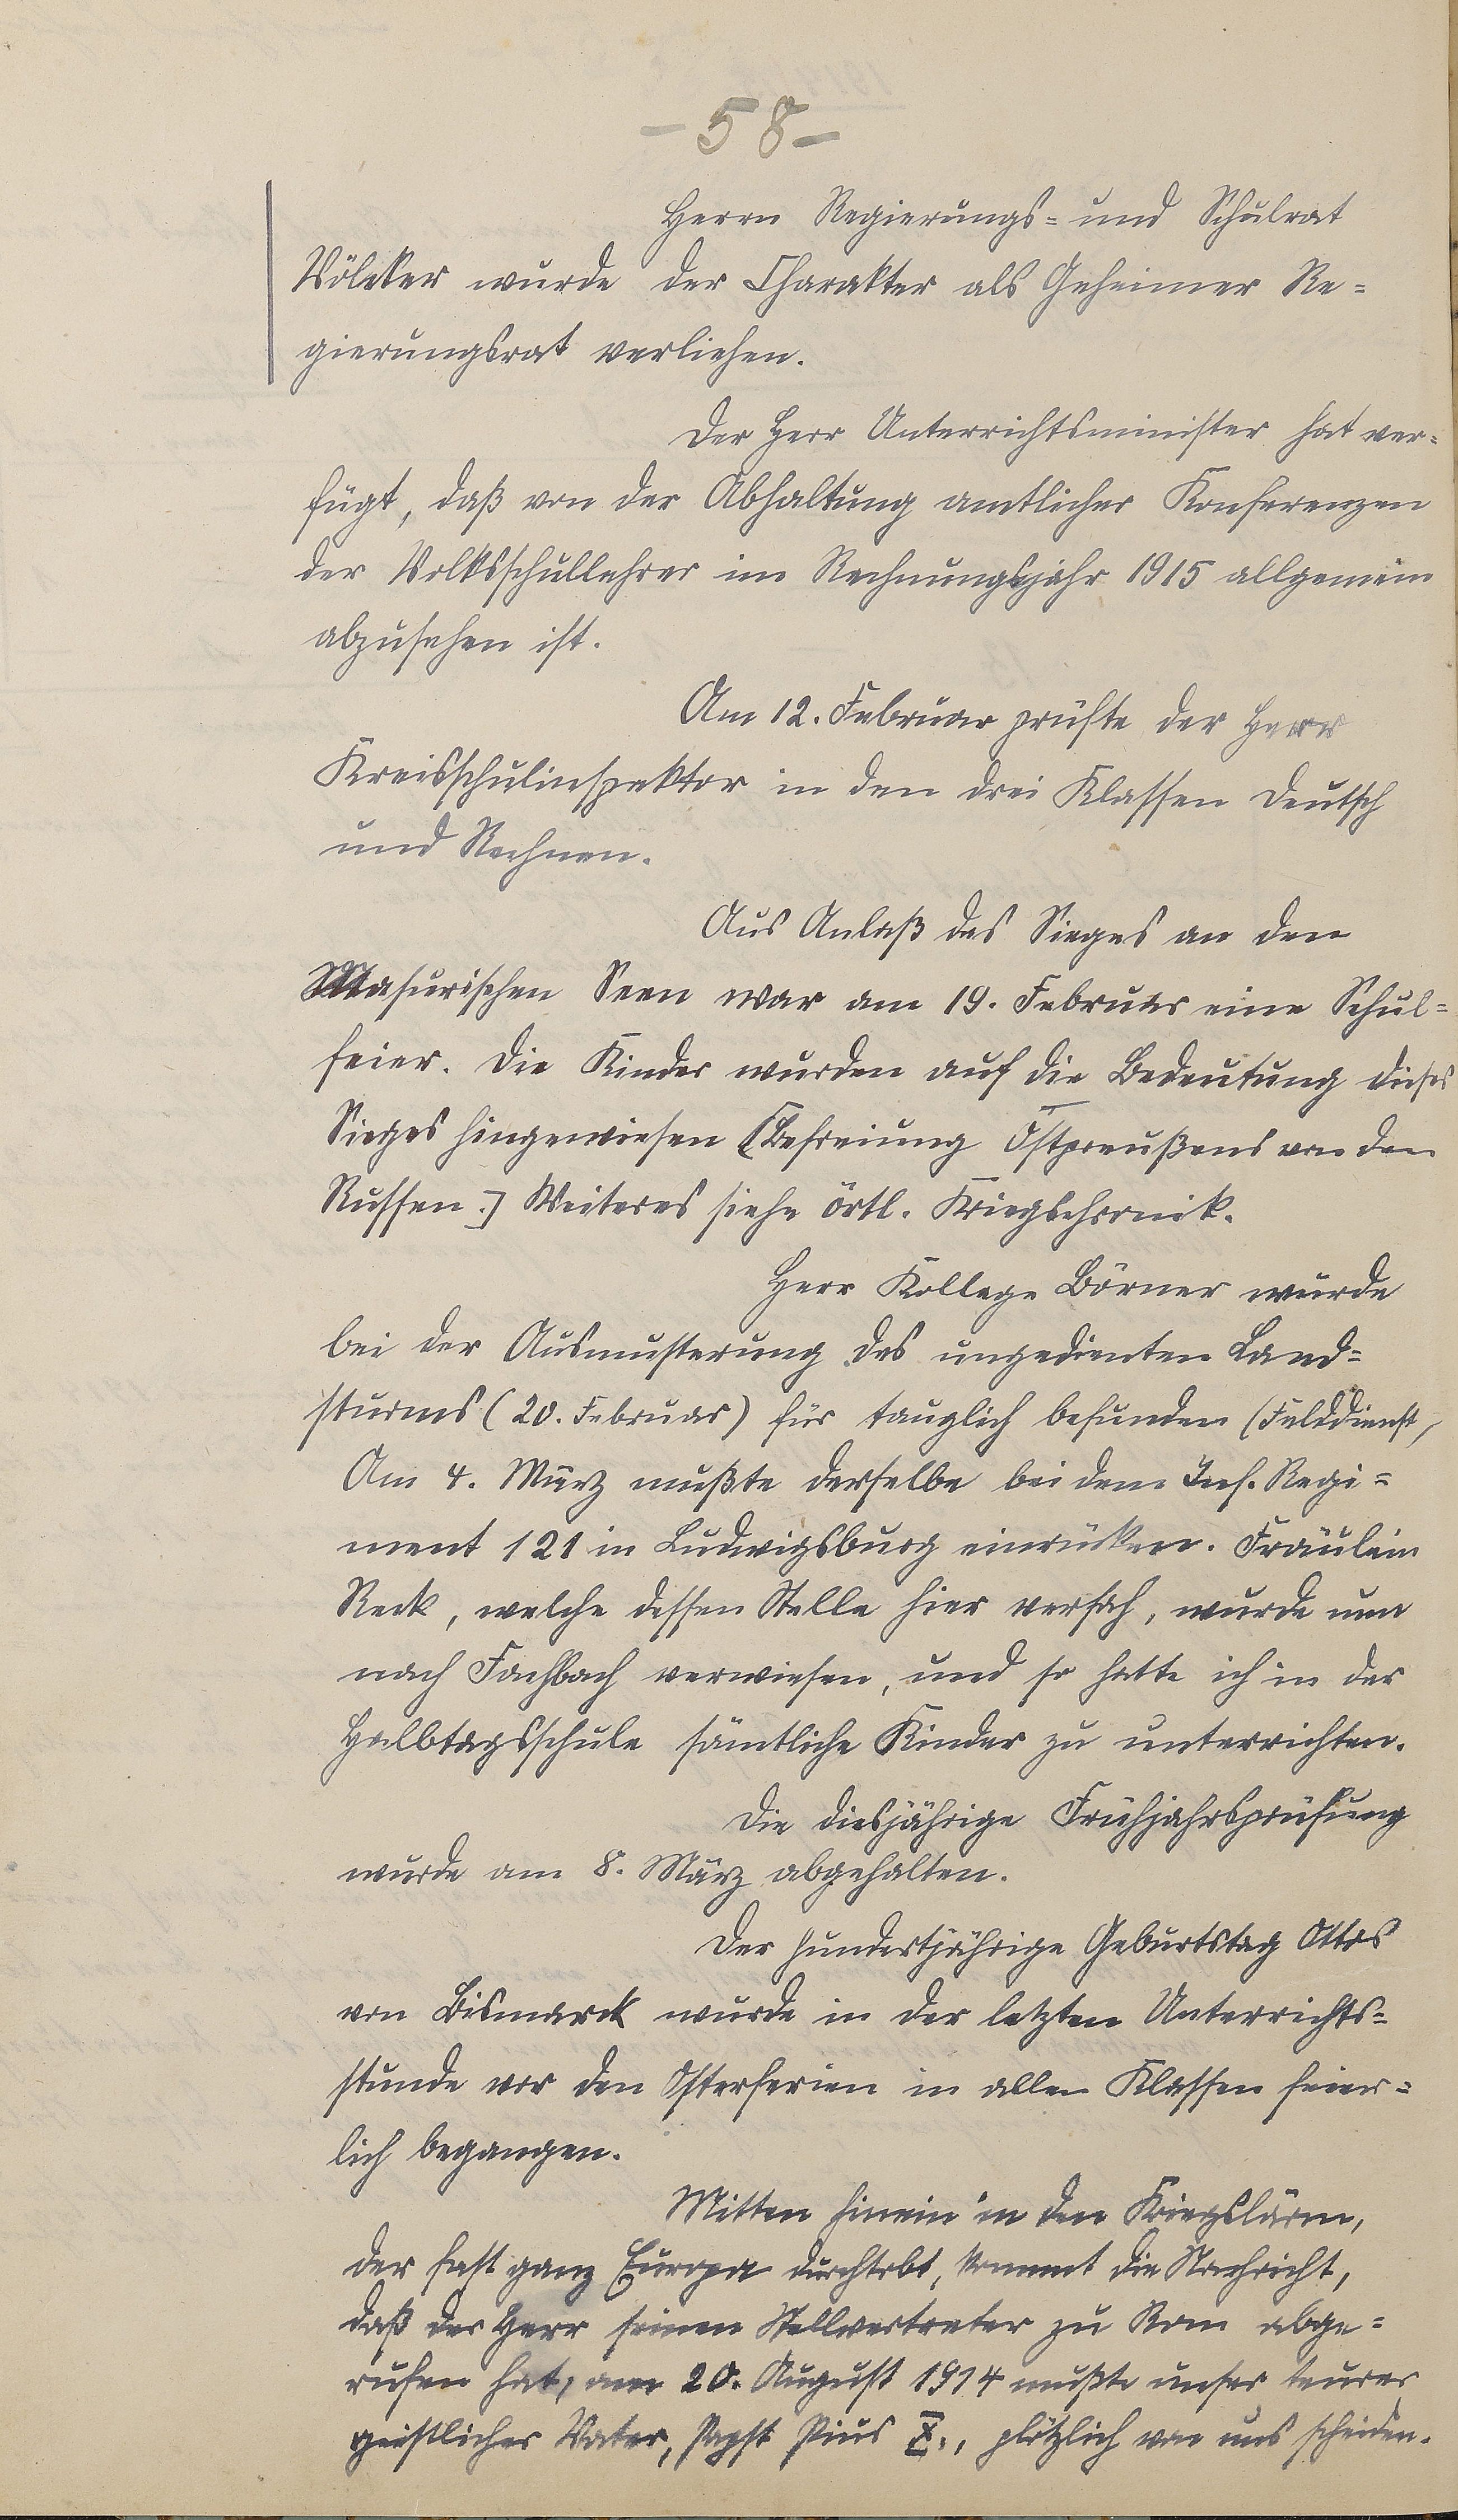 - 58 -
Herrn Regierungs- und Schulrat
Völcker wurde der Charakter als Geheimer Re-
gierungsrat verliehen.
Der Herr Unterrichtsminister hat ver-
fügt, daß von der Abhaltung amtlicher Konferenzen
der Volksschullehrer im Rechnungsjahr 1915 allgemein
abzusehen ist.
Am 12. Februar prüfte der Herr
Kreisschulinspektor in den drei Klassen Deutsch
und Rechnen.
Aus Anlaß des Sieges an den
Masurischen Seen war am 19. Februar eine Schul-
feier. Die Kinder wurden auf die Bedeutung dieses
Sieges hingewiesen (Befreiung Ostpreußens von den
Russen.) Weiteres siehe örtl. Kriegschronik.
Herr Kollege Börner wurde
bei der Ausmusterung des ungedienten Land-
sturms (20. Februar) für tauglich befunden (Felddienst,
Am 4. März mußte derselbe bei dem Inf. Regi-
ment 121 in Ludwigsburg einrücken. Fräulein
Reck, welche dessen Stelle hier versah, wurde nun
nach Fachbach verwiesen, und so hatte ich in der
Halbtagsschule sämtliche Kinder zu unterrichten.
Die diesjährige Frühjahrsprüfung
wurde am 8. März abgehalten.
Der hundertjährige Geburtstag Ottos
von Bismarck wurde in der letzten Unterrichts-
stunde vor den Osterferien in allen Klassen feier-
lich begangen.
Mitten hinein in den Kriegslärm,
der fast ganz Europa durchtobt, kommt die Nachricht,
daß der Herr seinen Stellvertreter zu Rom abge-
rufen hat, am 20. August 1914 mußte unser teurer
geistlicher Vater, Papst Pius X., plötzlich von uns scheiden.